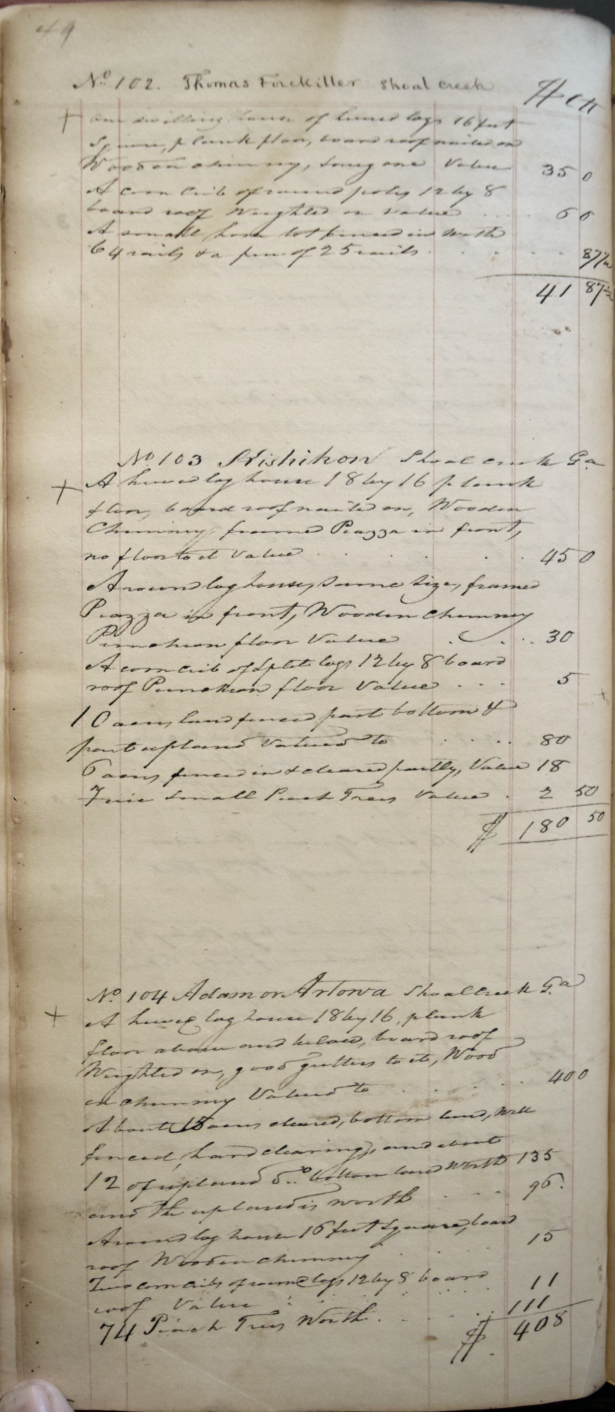 49
No 102. Thomas Foxkiller Shoal creek $ cts
+ One dwelling house of hewed logs 16 feet
Square, plank floor, board roof nailed on
Wooden chimny, Value 35 0
A corn crib of round poles 12 by 8
board roof Weighted on value 6 0
A small horse lot fenced in worth
64 rails & a pen of 25 rails 87½
41 87½
No 103 Shoal creek Ga
+ A hewed log house 18 by 16 plank
floor, board roof nailed on, Wooden
Chimney, framed Piazza in front,
no floor to it Value 45 0
A round log house, Same Size, framed
Piazza in front, Wooden Chimney
Puncheon floor Value 30
A corn crib of Split logs 12 by 8 board
roof Puncheon floor Value 5
10 acres land fenced part bottom &
part upland Valued to 80
6 acres fenced in & cleared partly, Value 18
Small Peach Trees Value 2 50
$ 180 50
No 104 Adam or Artowa Shoal Creek Ga
+ A hewed log house 18 by 16, plank
floor above and below, board roof
Weighted on, good gutters to it, Wood
en chimney Valued to 40 0
About 15 acres cleared, bottom land, well
fenced, hard clearing, and about
12 of upland Do. bottom land Worth 135
and the upland is worth 96.
A round log house 16 feet square, board
roof Wooden chimney 15
Two corn cribs of round logs 12 by 8 board
roof Value 11
74 Peach Trees Worth 111
$ 408